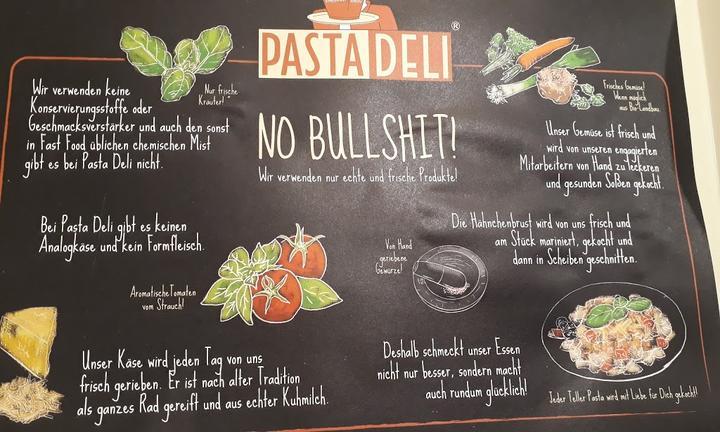 PASTA DELI®
Nur frische
Kräuter!
Frisches Gemüse!
Wenn möglich
aus Bio-Landbau.
Wir verwenden keine
Konservierungsstoffe oder
Geschmacksverstärker und auch den sonst
in Fast Food üblichen chemischen Mist
gibt es bei Pasta Deli nicht.
NO BULLSHIT!
Wir verwenden nur echte und frische Produkte!
Unser Gemüse ist frisch und
wird von unseren engagierten
Mitarbeitern von Hand zu leckeren
und gesunden Soßen gekocht.
Bei Pasta Deli gibt es keinen
Analogkäse und kein Formfleisch.
Die Hähnchenbrust wird von uns frisch und
am Stück mariniert, gekocht und
dann in Scheiben geschnitten.
Von Hand
geriebene
Gewürze!
Aromatische Tomaten
vom Strauch!
Unser Käse wird jeden Tag von uns
frisch gerieben. Er ist nach alter Tradition
als ganzes Rad gereift und aus echter Kuhmilch.
Deshalb schmeckt unser Essen
nicht nur besser, sondern macht
auch rundum glücklich!
Jeder Teller Pasta wird mit Liebe für Dich gekocht!